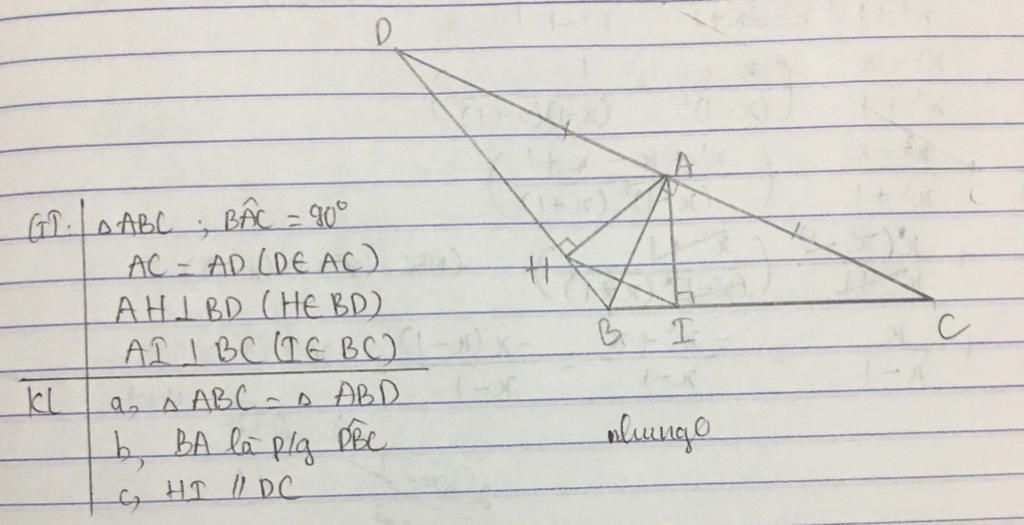 D
A
H
B
I
C
GT. △ABC ; BÂC = 90°
AC = AD (D∈ AC)
AH⊥BD (H∈ BD)
AI ⊥ BC (I∈ BC)
KL a, △ ABC = △ ABD
b, BA là p/g DB̂C
c, HI // DC
nhungo